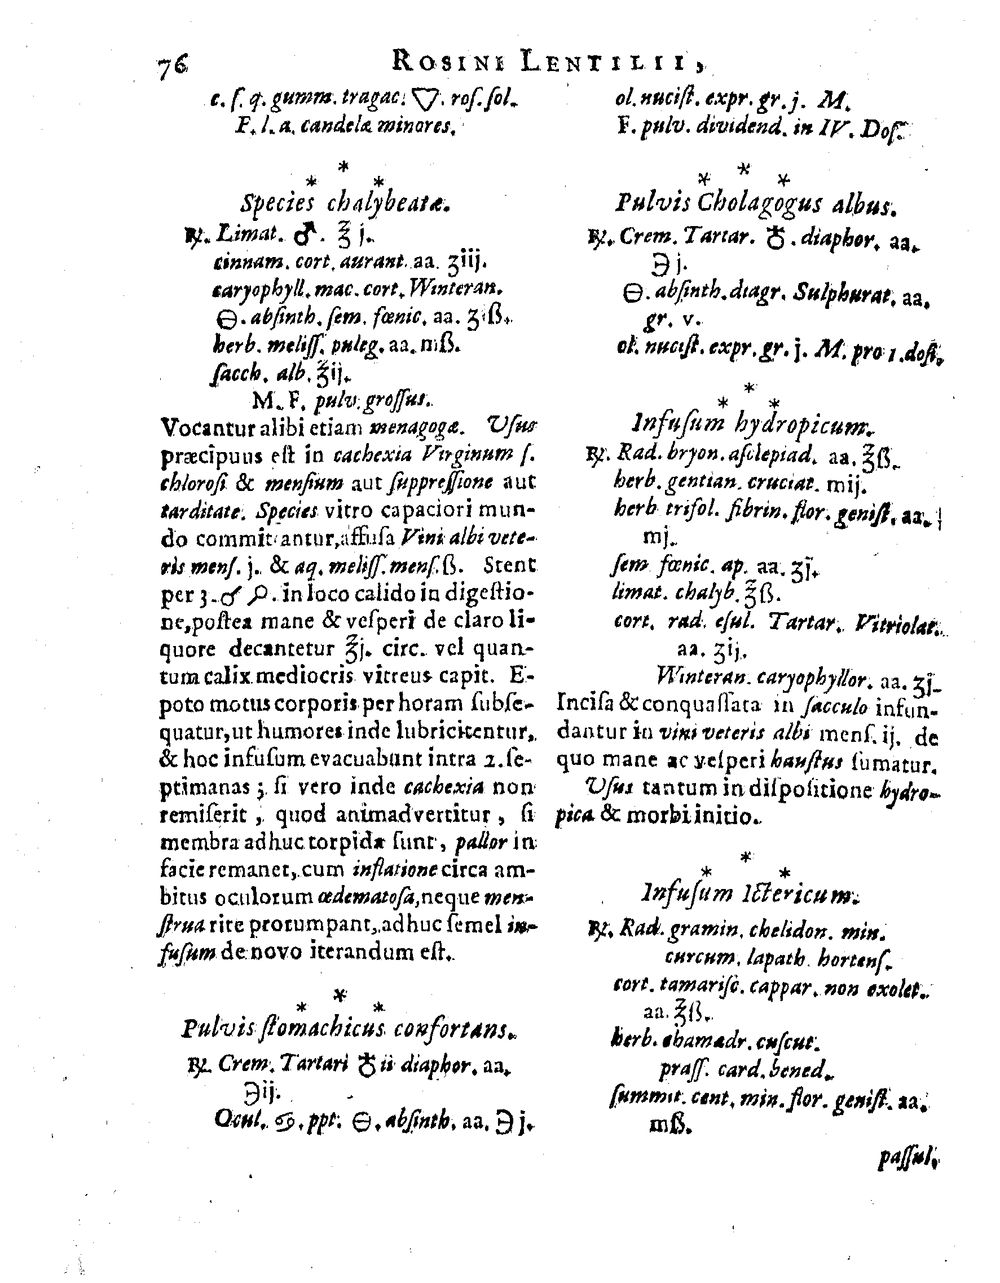 76 ROSINI LENTILII,
c. ſ. q. gumm. tragac. 🜄. roſ. ſol.
F. l. a. candelæ minores.
*
* *
Species chalybeatæ.
℞. Limat. ♂. ℥ j.
cinnam. cort. aurant. aa. ʒiij.
caryophyll. mac. cort. Winteran.
🜔. abſinth. ſem. fœnic. aa. ʒiß.
herb. meliſſ. puleg. aa. mß.
ſacch. alb. ℥ij.
M. F. pulv. groſſus.
Vocantur alibi etiam menagogæ. Uſus
præcipuus eſt in cachexia Virginum ſ.
chloroſi & menſium aut ſuppreſſione aut
tarditate. Species vitro capaciori mun-
do committantur, affuſa Vini albi vete-
ris menſ. j. & aq. meliſſ. menſ. ß. Stent
per 3. ♂ in loco calido in digeſtio-
ne, poſtea mane & veſperi de claro li-
quore decantetur ℥j. circ. vel quan-
tum calix mediocris vitreus capit. E-
poto motus corporis per horam ſubſe-
quatur, ut humores inde lubricitentur,
& hoc infuſum evacuabunt intra 2. ſe-
ptimanas; ſi vero inde cachexia non
remiſerit, quod animadvertitur, ſi
membra adhuc torpida ſunt, pallor in
facie remanet, cum inflatione circa am-
bitus oculorum œdematoſa, neque men-
ſtrua rite prorumpant, adhuc ſemel in-
fuſum de novo iterandum eſt.
*
* *
Pulvis ſtomachicus confortans.
℞. Crem. Tartari ♁ ii diaphor. aa.
℈ij.
Ocul. ♋. ppt. 🜔. abſinth. aa. ℈ j.
ol. nuciſt. expr. gr. j. M.
F. pulv. dividend. in IV. Doſ.
*
* *
Pulvis Cholagogus albus.
℞. Crem. Tartar. ♁. diaphor. aa.
℈ j.
🜔. abſinth. diagr. Sulphurat. aa.
gr. v.
ol. nuciſt. expr. gr. j. M. pro 1. doſi.
*
* *
Infuſum hydropicum.
℞. Rad. bryon. aſclepiad. aa. ℥ß.
herb. gentian. cruciat. mij.
herb trifol. fibrin. flor. geniſt. aa.
mj.
ſem fœnic. ap. aa. ʒj.
limat. chalyb. ℥ß.
cort. rad. eſul. Tartar. Vitriolat.
aa. ʒij.
Winteran. caryophyllor. aa. ʒj.
Inciſa & conquaſſata in ſacculo infun-
dantur in vini veteris albi menſ. ij. de
quo mane ac veſperi hauſtus ſumatur.
Uſus tantum in diſpoſitione hydro-
pica & morbi initio.
*
* *
Infuſum Ictericum.
℞. Rad. gramin. chelidon. min.
curcum. lapath. hortenſ.
cort. tamariſc. cappar. non exolet.
aa. ℥ß.
herb. chamædr. cuſcut.
praſſ. card. bened.
ſummit. cent. min. flor. geniſt. aa.
mß.
paſſul.